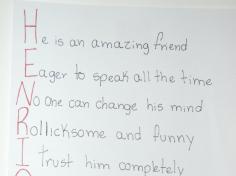 He is an amazing friend
Eager to speak all the time
No one can change his mind
Rollicksome and funny
I trust him completely